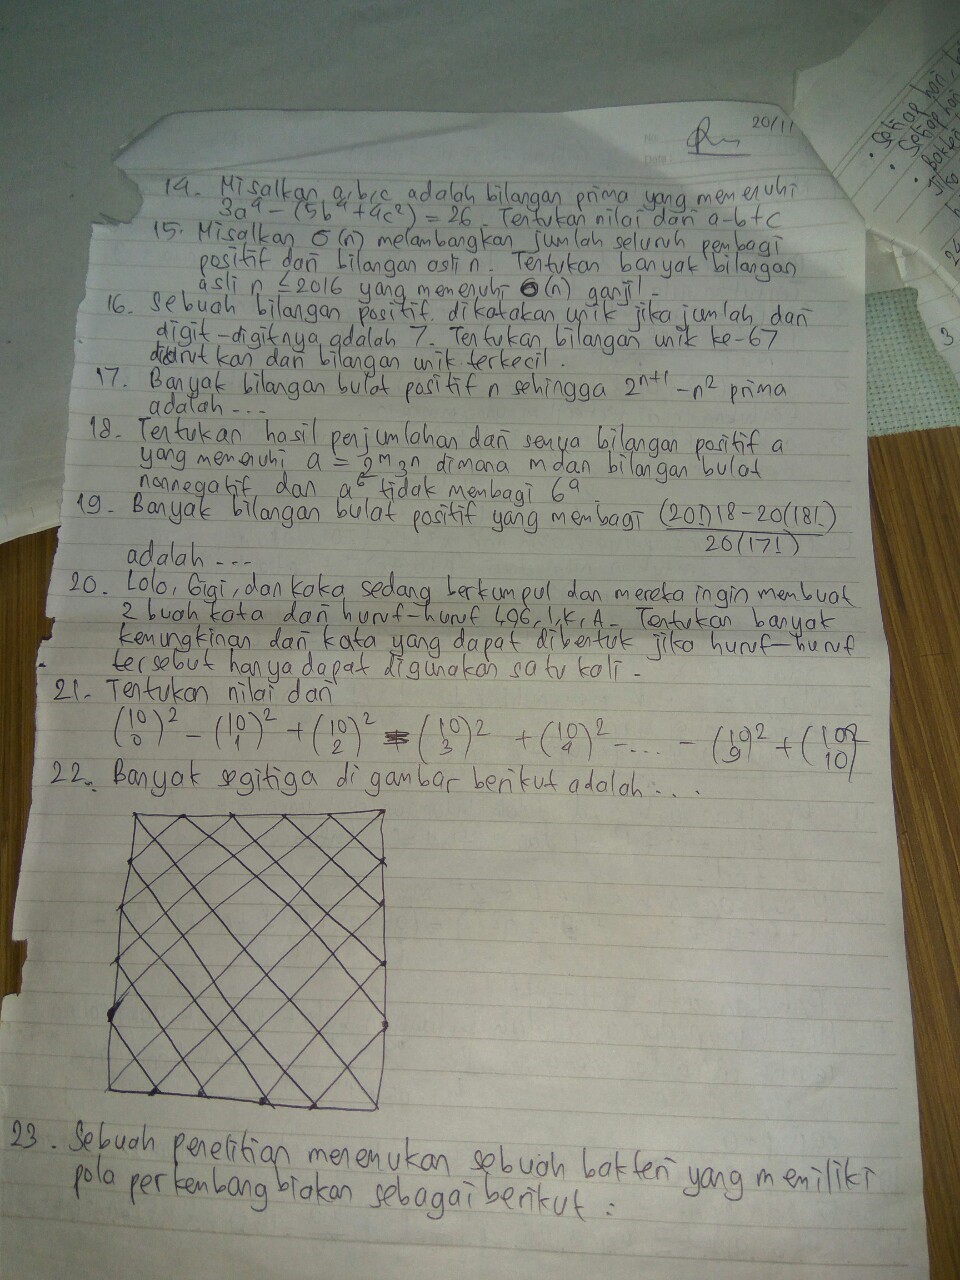 20/11
14. Misalkan a,b,c adalah bilangan prima yang memenuhi
3a⁴ - (5b⁴ + 4c²) = 26. Tentukan nilai dari a-b+c
15. Misalkan σ(n) melambangkan jumlah seluruh pembagi
positif dari bilangan asli n. Tentukan banyak bilangan
asli n ≤ 2016 yang memenuhi σ(n) ganjil.
16. Sebuah bilangan positif dikatakan unik jika jumlah dari
digit-digitnya adalah 7. Tentukan bilangan unik ke-67
diurutkan dari bilangan unik terkecil.
17. Banyak bilangan bulat positif n sehingga 2ⁿ⁺¹ - n² prima
adalah ...
18. Tentukan hasil penjumlahan dari semua bilangan positif a
yang memenuhi a = 2ᵐ3ⁿ dimana m dan bilangan bulat
nonnegatif dan a⁶ tidak membagi 6ᵃ
19. Banyak bilangan bulat positif yang membagi (20!)18 - 20(18!)
20(17!)
adalah ...
20. Lolo, Gigi, dan Kaka sedang berkumpul dan mereka ingin membuat
2 buah kata dari huruf-huruf L,O,G,I,K,A. Tentukan banyak
kemungkinan dari kata yang dapat dibentuk jika huruf-huruf
tersebut hanya dapat digunakan satu kali.
21. Tentukan nilai dari
(10 0)² - (10 1)² + (10 2)² - (10 3)² + (10 4)² - ... - (10 9)² + (10 10)²
22. Banyak segitiga di gambar berikut adalah ...
23. Sebuah penelitian menemukan sebuah bakteri yang memiliki
pola perkembangbiakan sebagai berikut :
• Setiap hari,
• Setiap hari
• Bakteri
Jika
24.
3